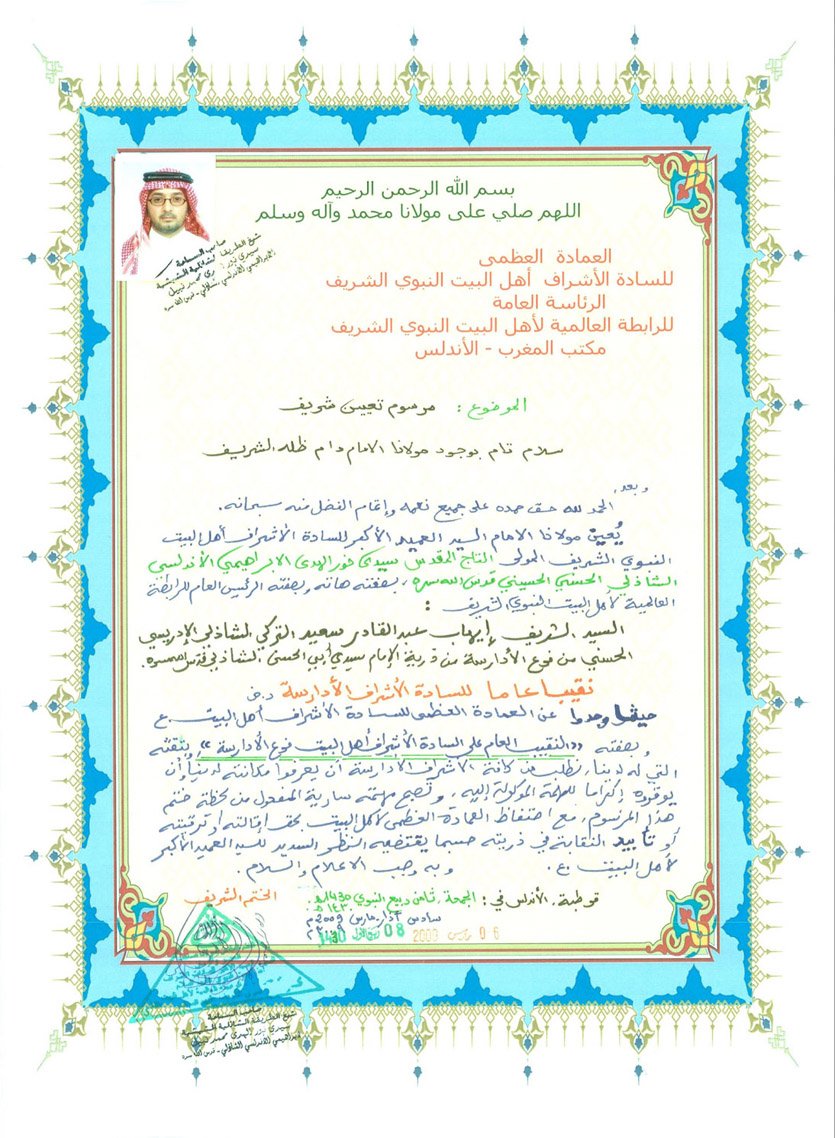 بسم الله الرحمن الرحيم
اللهم صلي على مولانا محمد وآله وسلم
العمادة العظمى
للسادة الأشراف أهل البيت النبوي الشريف
الرئاسة العامة
للرابطة العالمية لأهل البيت النبوي الشريف
مكتب المغرب - الأندلس
صاحب السماحة
شيخ الطريقة الشاذلية المشيشية
سيدي نور الهدى محمد نبيل
الإبراهيمي الأندلسي الشاذلي - قدس الله سره
الموضوع : مرسوم تعيين شريف
سلام تام بوجود مولانا الامام دام ظله الشريف
وبعد،
الحمد لله حق حمده على جميع نعمه وإتمام الفضل منه سبحانه.
يُعين مولانا الامام السيد العميد الأكبر للسادة الأشراف أهل البيت
النبوي الشريف المولى التاج المقدس سيدي نور الهدى الابراهيمي الأندلسي
الشاذلي الحسني الحسيني قدس الله سره، بصفته هاته وبصفته الرئيس العام للرابطة
العالمية لأهل البيت النبوي الشريف :
السيد الشريف إيهاب عبد القادر سعيد التركي الشاذلي الإدريسي
الحسني من فرع الأدارسة من ذرية الإمام سيدي أبي الحسن الشاذلي قدس الله سره.
نقيبا عاما للسادة الأشراف الأدارسة
حيثما وجدوا عن العمادة العظمى للسادة الأشراف أهل البيت ع
وبصفته «النقيب العام على السادة الأشراف أهل البيت فرع الأدارسة» وبثقته
التي له لدينا، نطلب من كافة الأشراف الأدارسة أن يعرفوا مكانته لدينا وأن
يوقروه إكراما للمهمة الموكولة إليه، وتصبح مهمته سارية المفعول من لحظة ختم
هذا المرسوم، مع احتفاظ العمادة العظمى لأهل البيت بحق إقالته أو ترقيته
أو تأبيد النقابة في ذريته حسبما يقتضيه النظر السديد للسيد العميد الأكبر
لأهل البيت ع. وبه وجب الاعلام والسلام.
قرطبة، الأندلس في : الجمعة، ثامن ربيع النبوي 1430
الختم الشريف
سادس آذار، مارس 2009م
06 مارس 2009 08
صاحب السماحة
شيخ الطريقة الشاذلية المشيشية
سيدي نور الهدى محمد نبيل
الإبراهيمي الأندلسي الشاذلي - قدس الله سره